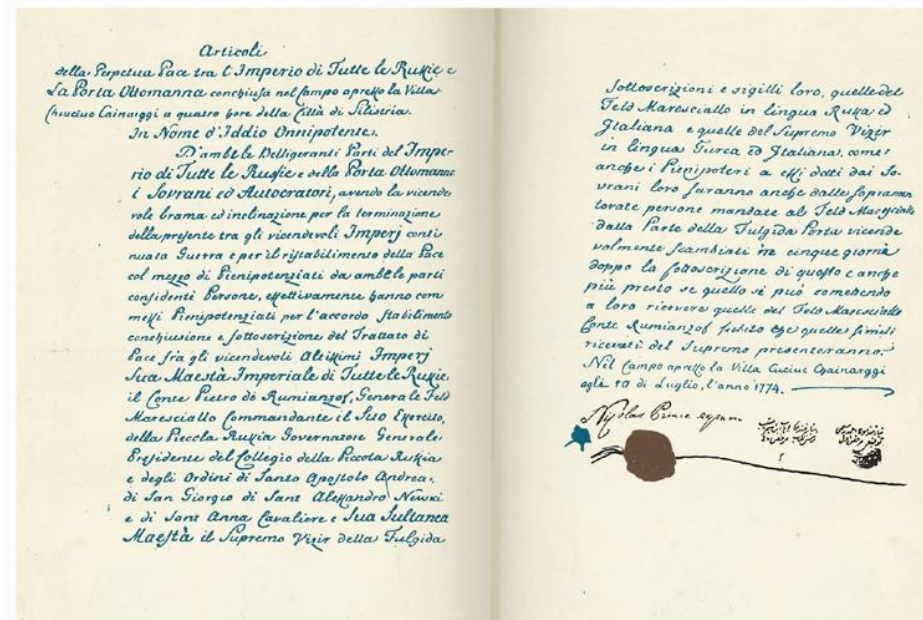 Articoli
della Perpetua Pace tra l'Imperio di Tutte le Russie e
La Porta Ottomanna conchiusa nel Campo apresso la Villa
Chiuciuc Cainarggi a quatro hore della Città di Silistria.
In Nome d'Iddio Onnipotente.
D'ambe le Belligeranti Parti del Imper-
rio di Tutte le Russie e della Porta Ottomanna
i Sovrani ed Autocratori, avendo la vicende
vole brama ed inclinazione per la terminazione
della presente tra gli vicendevoli Imperj conti
nuata Guerra e per il ristabilimento della Pace
col mezzo di Pienipotenziati da ambe le parti
confidenti Persone, effettivamente hanno com
messi Pienipotenziati per l'accordo stabilimento
conchiusione e sottoscrizione del Trattato di
Pace fra gli vicendevoli Altissimi Imperj
Sua Maestà Imperiale di Tutte le Russie
il Conte Pietro de Rumianzof, Generale Feld
Maresciallo Commandante il Suo Esercito,
della Piccola Russia Governatore Generale
Presidente del Collegio della Piccola Russia
e degli Ordini di Santo Apostolo Andrea,
di San Giorgio di Sant Alessandro Newski
e di Sant Anna Cavaliere e Sua Sultanea
Maestà il Supremo Vizir della Fulgida
sottoscrizioni e sigilli loro, quelle del
Feld Maresciallo in lingua Russa ed
Italiana e quelle del Supremo Vizir
in lingua Turca ed Italiana, come
anche i Pienipoteri a essi dati dai So-
vrani loro saranno anche dalle sopramen
tovate persone mandate al Feld Maresciallo
dalla Parte della Fulgida Porta vicende
volmente scambiati in cinque giorni
doppo la sottoscrizione di questo e anche
più presto se quello si può
a loro ricevere quelle del Feld Maresciallo
Conte Rumianzof subito che quelle simili
ricevuti del Supremo presenteranno.
Nel Campo apresso la Villa Cuciuc Chainarggi
agli 10 di Luglio, l'anno 1774.
Prince